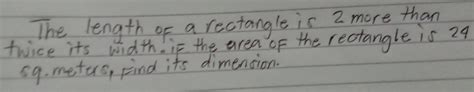 The length of a rectangle is 2 more than
twice its width. if the area of the rectangle is 24
sq. meters, Find its dimension.